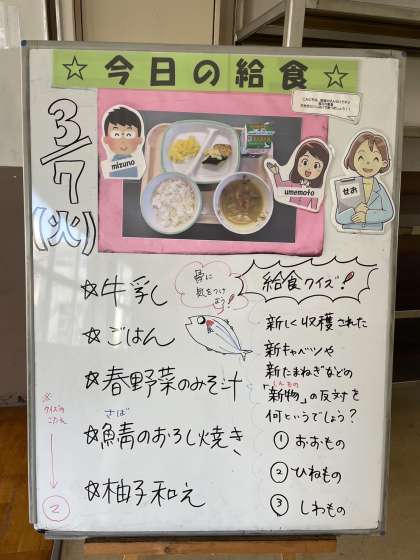 ☆今日の給食☆
3/7
(火)
mizuno
umemoto
せお
☆牛乳
☆ごはん
☆春野菜のみそ汁
さば
☆鯖のおろし焼き
☆柚子和え
骨に
気をつけ
よう!
給食クイズ!
新しく収穫された
新キャベツや
新たまねぎなどの
しんもの
「新物」の反対を
何というでしょう?
① おおもの
② ひねもの
③ しわもの
※
クイズの
こたえ
②